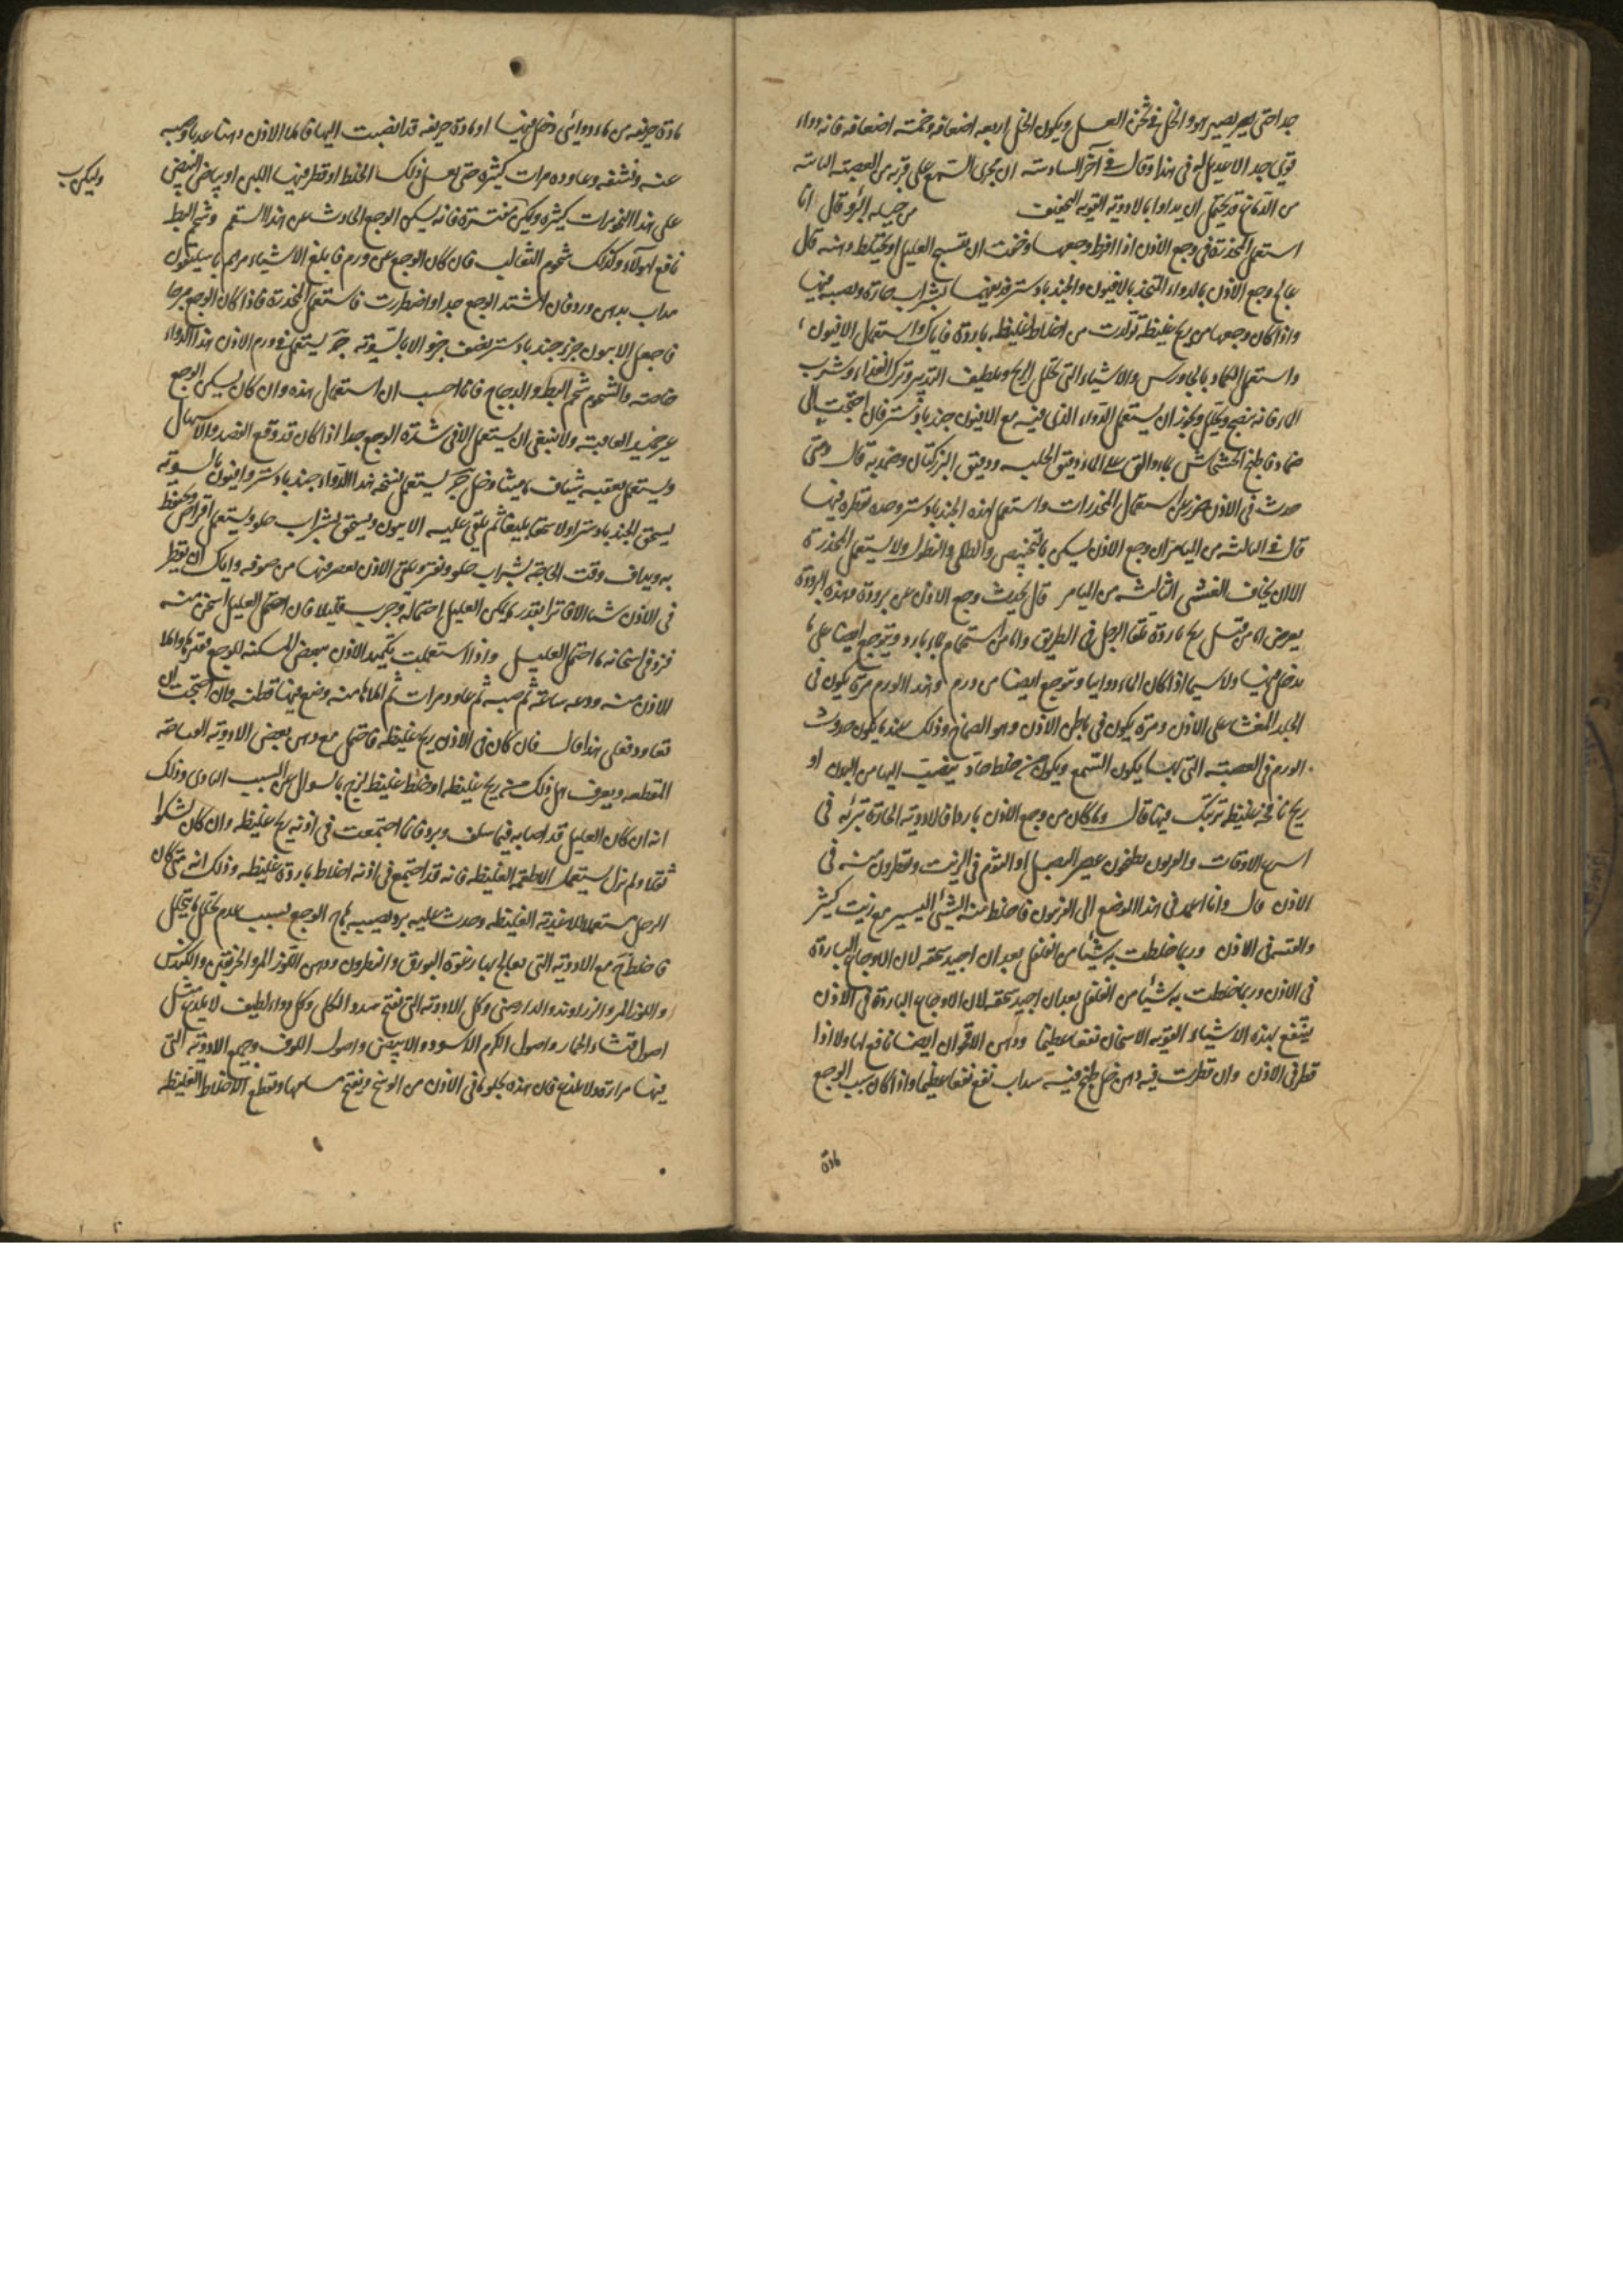 جدا حتى يصير هو والخل في ثخن العسل ويكون الخل اربعه اضعافه وخمسة اضعافه فانه دواء
قوي جدا لا عديل له في هذا وقال في آخر السادسة ان مجرى السمع على قربه من العصبة
من الدماغ قد يحتمل ان يداوا بالادوية القوية التجفيف من حيله البرؤ قال انا
استعمل المخدرة في وجع الاذن اذا افرط وجعها وخفت ان يتشنج العليل او يختلط ذهنه قال
عالج وجع الاذن بالدواء المتخذ بالافيون والجندبادستر بشراب
واذا كان وجعها من ريح غليظة تولدت من اخلاط غليظه باردة فاياك واستعمال الافيون
واستعمل الكماد بالجاورس والاشياء التي تحلل الريح وتلطيف التدبير وترك الغذاء وشرب
الماء فانه ينضج ويحلل ويجوز ان يستعمل الدواء الذي فيه مع الافيون جندبادستر فان احتجت الى
ضماد فاطبخ الخشخاش بماء والق على الماء دقيق الحلبه ودقيق البزركتان وضمد به قال ومتى
حدث في الاذن ضرر عن استعمال المخدرات واستعمل لهذه الجندبادستر وحده تقطره فيها
قال في الثالثة من الميامر ان وجع الاذن يسكن والنطول ولا يستعمل المخدرة
الا ان يخاف الغشي الثالثه من الميامر قال يحدث وجع الاذن عن برودة وهذه البرودة
يعرض اما من قبل ريح باردة تلقا الرجل في الطريق واما من استحمام بماء بارد ويتوجع ايضا على ما
يدخل فيها ولا سيما اذا كان الماء دوائيا وتوجع ايضا من ورم وهذا الورم مرة يكون في
الجلد المغشا على الاذن ومرة يكون في باطن الاذن وهو الصماخ وذلك عندما يكون حدوث
الورم في العصبة التي بها يكون السمع ويكون من خلط حاد ينصب اليها من البدن او
ريح نافخه غليظه ترتبك فيها قال وما كان من وجع الاذن باردا فالادوية الحادة تبرئه في
اسرع الاوقات والقرويون يطبخون عصير البصل او الثوم في الزيت ويقطرون منه في
الاذن قال وانا اعمد في هذا الموضع الى الفربيون فاخلط منه الشئ اليسير مع زيت كثير
وا في الاذن وربما خلطت به شيئا من الفلفل بعد ان اجيد سحقه لان الاوجاع الباردة
في الاذن وربما خلطت به شيئا من الفلفل بعد ان اجيد سحقه لان الاوجاع الباردة في الاذن
ينتفع بهذه الاشياء القوية الاسخان نفعا عظيما ودهن الاقحوان ايضا نافع لها ولا اذا
قطر في الاذن وان قطرت فيه دهن خل طبخ فيه سداب نفع نفعا عظيما واذا كان سبب الوجع
مادة
مادة حريفه من ماء دوائي دخل فيها او مادة حريفه قد انصبت اليها فاملا الاذن دهنا عذبا وصبه
عنه ونشفه وعاوده مرات كثيره حتى يغسل ذلك الخلط او قطر فيها اللبن او بياض البيض
وليكن
على هذا مرات كثيره وليكن مفترة فانه يسكن الوجع الحادث عن هذا السقم وشحم البط
نافع لهولاء وكذلك شحوم الثعالب فان كان الوجع عن ورم فابلغ الاشياء مرهم باسليقون
مذاب بدهن ورد فان اشتد الوجع جدا واضطررت فاستعمل المخدرة فاذا كان الوجع مبرحا
فاجعل الافيون جزء جندبادستر نصف جزو الا بالسوية يستعمل في ورم الاذن هذا الدواء
خاصة والشحوم شحم البط والدجاج فانا احسب ان استعمال هذه وان كان يسكن الوجع
غير حميد العاقبة ولا ينبغي ان يستعمل الا في شدة الوجع جدا اذا كان قد وقع الفصد والاسهال
ويستعمل بعقبه شياف ماميثا وخل يستعمل نسخه هذا الدواء جندبادستر وافيون بالسوية
يسحق الجندبادستر اولا سحقا بليغا ثم يلقى عليه الافيون ويسحق بشراب حلو ويستعمل اقراص ويحفظ
به ويداف وقت الحاجة بشراب حلو ويفتر ويلقى الاذن بعصر فيها من صوفه واياك ان تقطر
في الاذن شيا الا فاترا بقدر ما يمكن العليل احتماله وجرب قليلا فان احتمل العليل اسخن منه
فزد في اسخانه ما احتمل العليل واذا استعملت تكميد الاذن ببعض المسكنه للوجع فقطرها واملا
الاذن منه ودعه ساعة ثم صبه ثم عاود مرات ثم املاها منه وضع فيها قطنه وان احتجت ان
تعاود فعلى هذا قال فان كان في الاذن ريح غليظه فاحتمل مع دهن بعض الادوية
المقطعه ويعرف هل ذلك من ريح غليظه او خلط غليظ لزج بالسوال عن السبب البادى وذلك
انه ان كان العليل قد اصابه فيما سلف برد فانما اجتمعت في اذنه ريح غليظه وان كان يشكوا
ثقلا ولم يزل يستعمل الاطعمه الغليظه فانه قد اجتمع في اذنه اخلاط باردة غليظه وذلك انه متى كان
الرجل مستعملا للاغذية الغليظه وحدث عليه برد يصيبه هاج الوجع بسبب عدم تحلل ما يتحلل
فاخلط مع الادوية التي يعالج بها رغوة البورق والنطرون ودهن اللوز المر والخربقين والكندس
واللوز المر والزراوند والدارصيني وكل الادوية التي تفتح سدد الكلى وكل دواء لطيف لا يلذع مثل
اصول قثاء الحمار واصول الكرم الاسود والابيض واصول اللوف وجميع الادوية التي
فيها مرارة ولا تلذع فان هذه تجلو ما في الاذن من الوسخ وتفتح مسامها وتقطع الاخلاط الغليظه